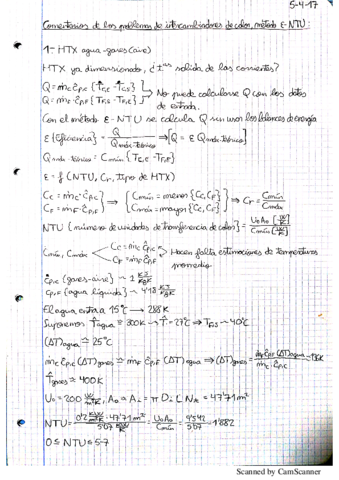 5-4-17
Comentarios de los problemas de intercambiadores de calor, método E-NTU:
1- HTX agua-gases (aire)
HTX ya dimensionado, ¿Tas salida de las corrientes?
Q = ṁc ĉp,c {Tce - Tcs}
Q = ṁF ĉp,F {TFs - TFe}
No puede calcularse Q con los datos de entrada.
Con el método E-NTU se calcula Q sin usar los balances de energía
E {Eficiencia} = Q / Qmáx-teórico → [Q = E Qmáx-teórico]
Qmáx-teórico = Cmín {Tc,e - TF,e}
E = f (NTU, Cr, tipo de HTX)
Cc = ṁc · ĉp,c
CF = ṁF · ĉp,F
Cmín = menor {Cc, CF}
Cmáx = mayor {Cc, CF}
→ Cr = Cmín / Cmáx
NTU {número de unidades de transferencia de calor} = Uo Ao [W/K] / Cmín [W/K]
Cmín, Cmáx
Cc = ṁc ĉp,c
CF = ṁF ĉp,F
Hacen falta estimaciones de temperaturas promedio
ĉp,c (gases-aire) ~ 1 KJ/KgK
ĉp,F {agua líquida} ~ 4'18 KJ/KgK
El agua entra a 15°C → 288K
Suponemos T̂agua = 300K → T = 27°C → TFs ~ 40°C
(ΔT)agua ≃ 25°C
ṁc ĉp,c (ΔT)gases ≃ ṁF ĉp,F (ΔT)agua ⇒ (ΔT)gases = ṁF ĉp,F (ΔT)agua / ṁc ĉp,c
T̂gases ≃ 400K
Uo = 200 W/m²K, Ao ≃ AL = π DL L NR = 47'71 m²
NTU = 0'2 KW/m²K · 47'71 m² / 5'07 KW/K = Uo Ao / Cmín = 9'542 / 5'07 = 1'882
0 ≤ NTU ≤ 5-7
Scanned by CamScanner